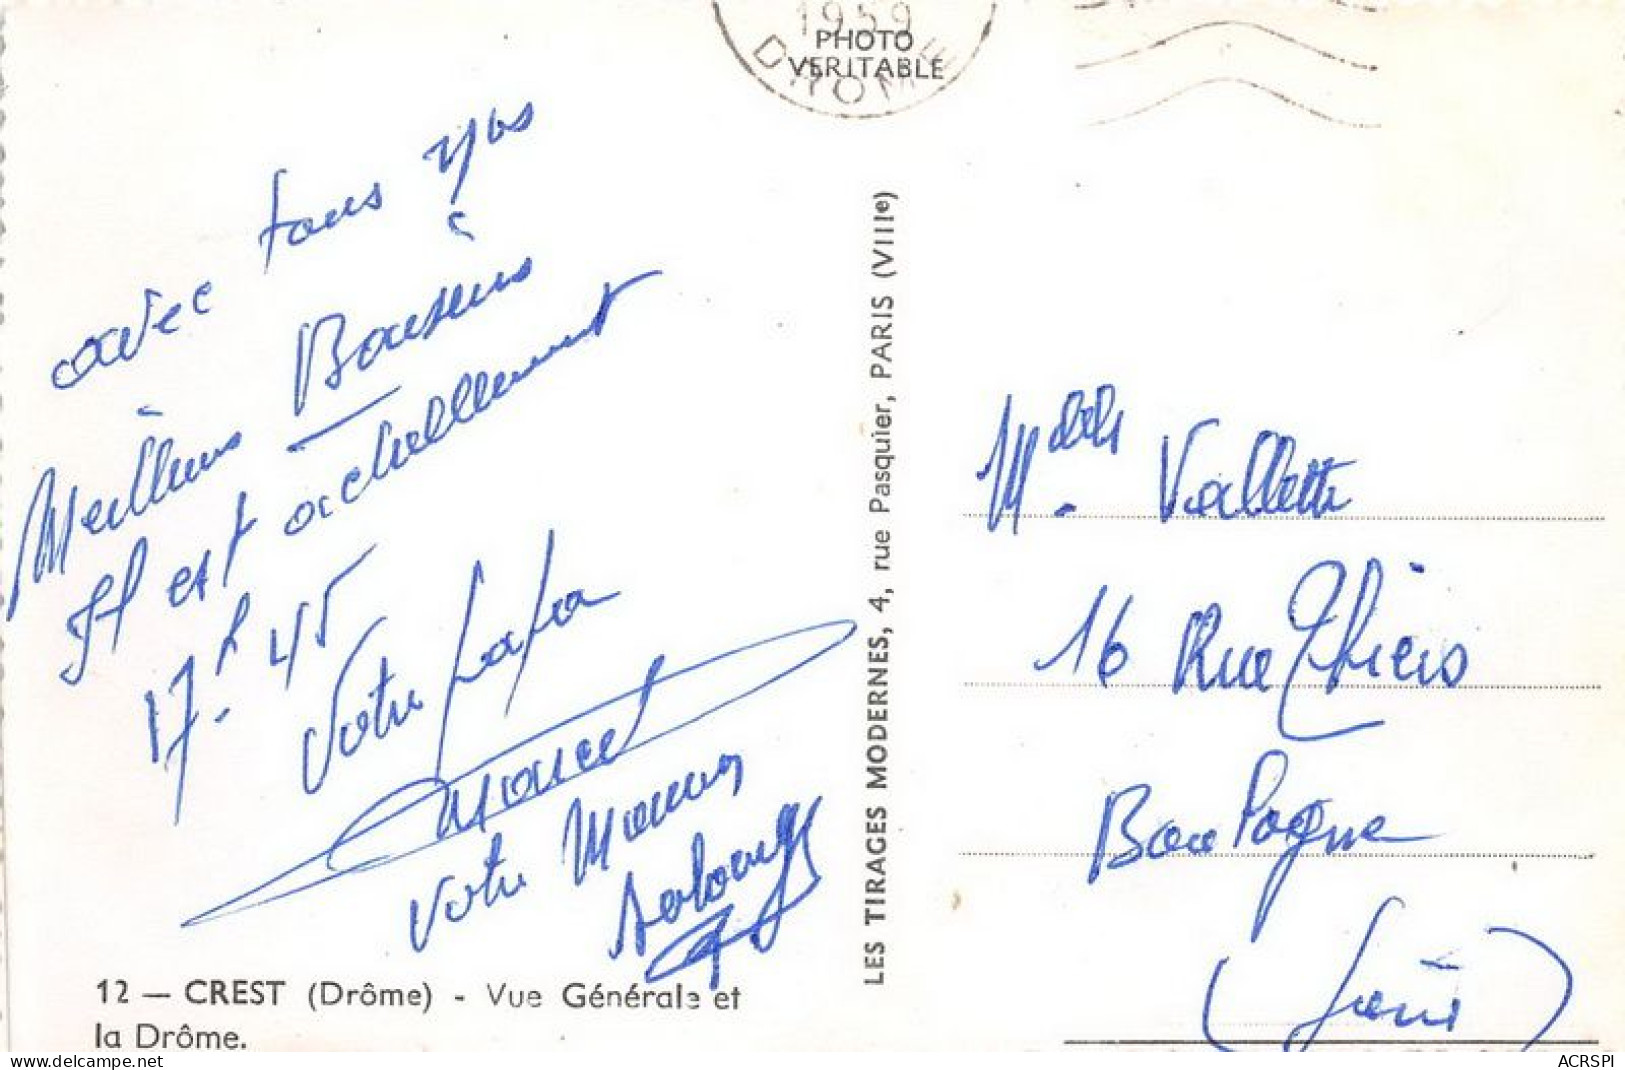 1959
DROME
PHOTO
VERITABLE
avec tous nos
Meilleurs Baisers
Il est actuellement
17h 45
Votre papa
Marcel
votre Maman
12 — CREST (Drôme) - Vue Générale et
la Drôme.
LES TIRAGES MODERNES, 4, rue Pasquier, PARIS (VIIIe)
Mdelle Vallette
16 Rue Thiers
Boulogne
(Seine)
www.delcampe.net
ACRSPI